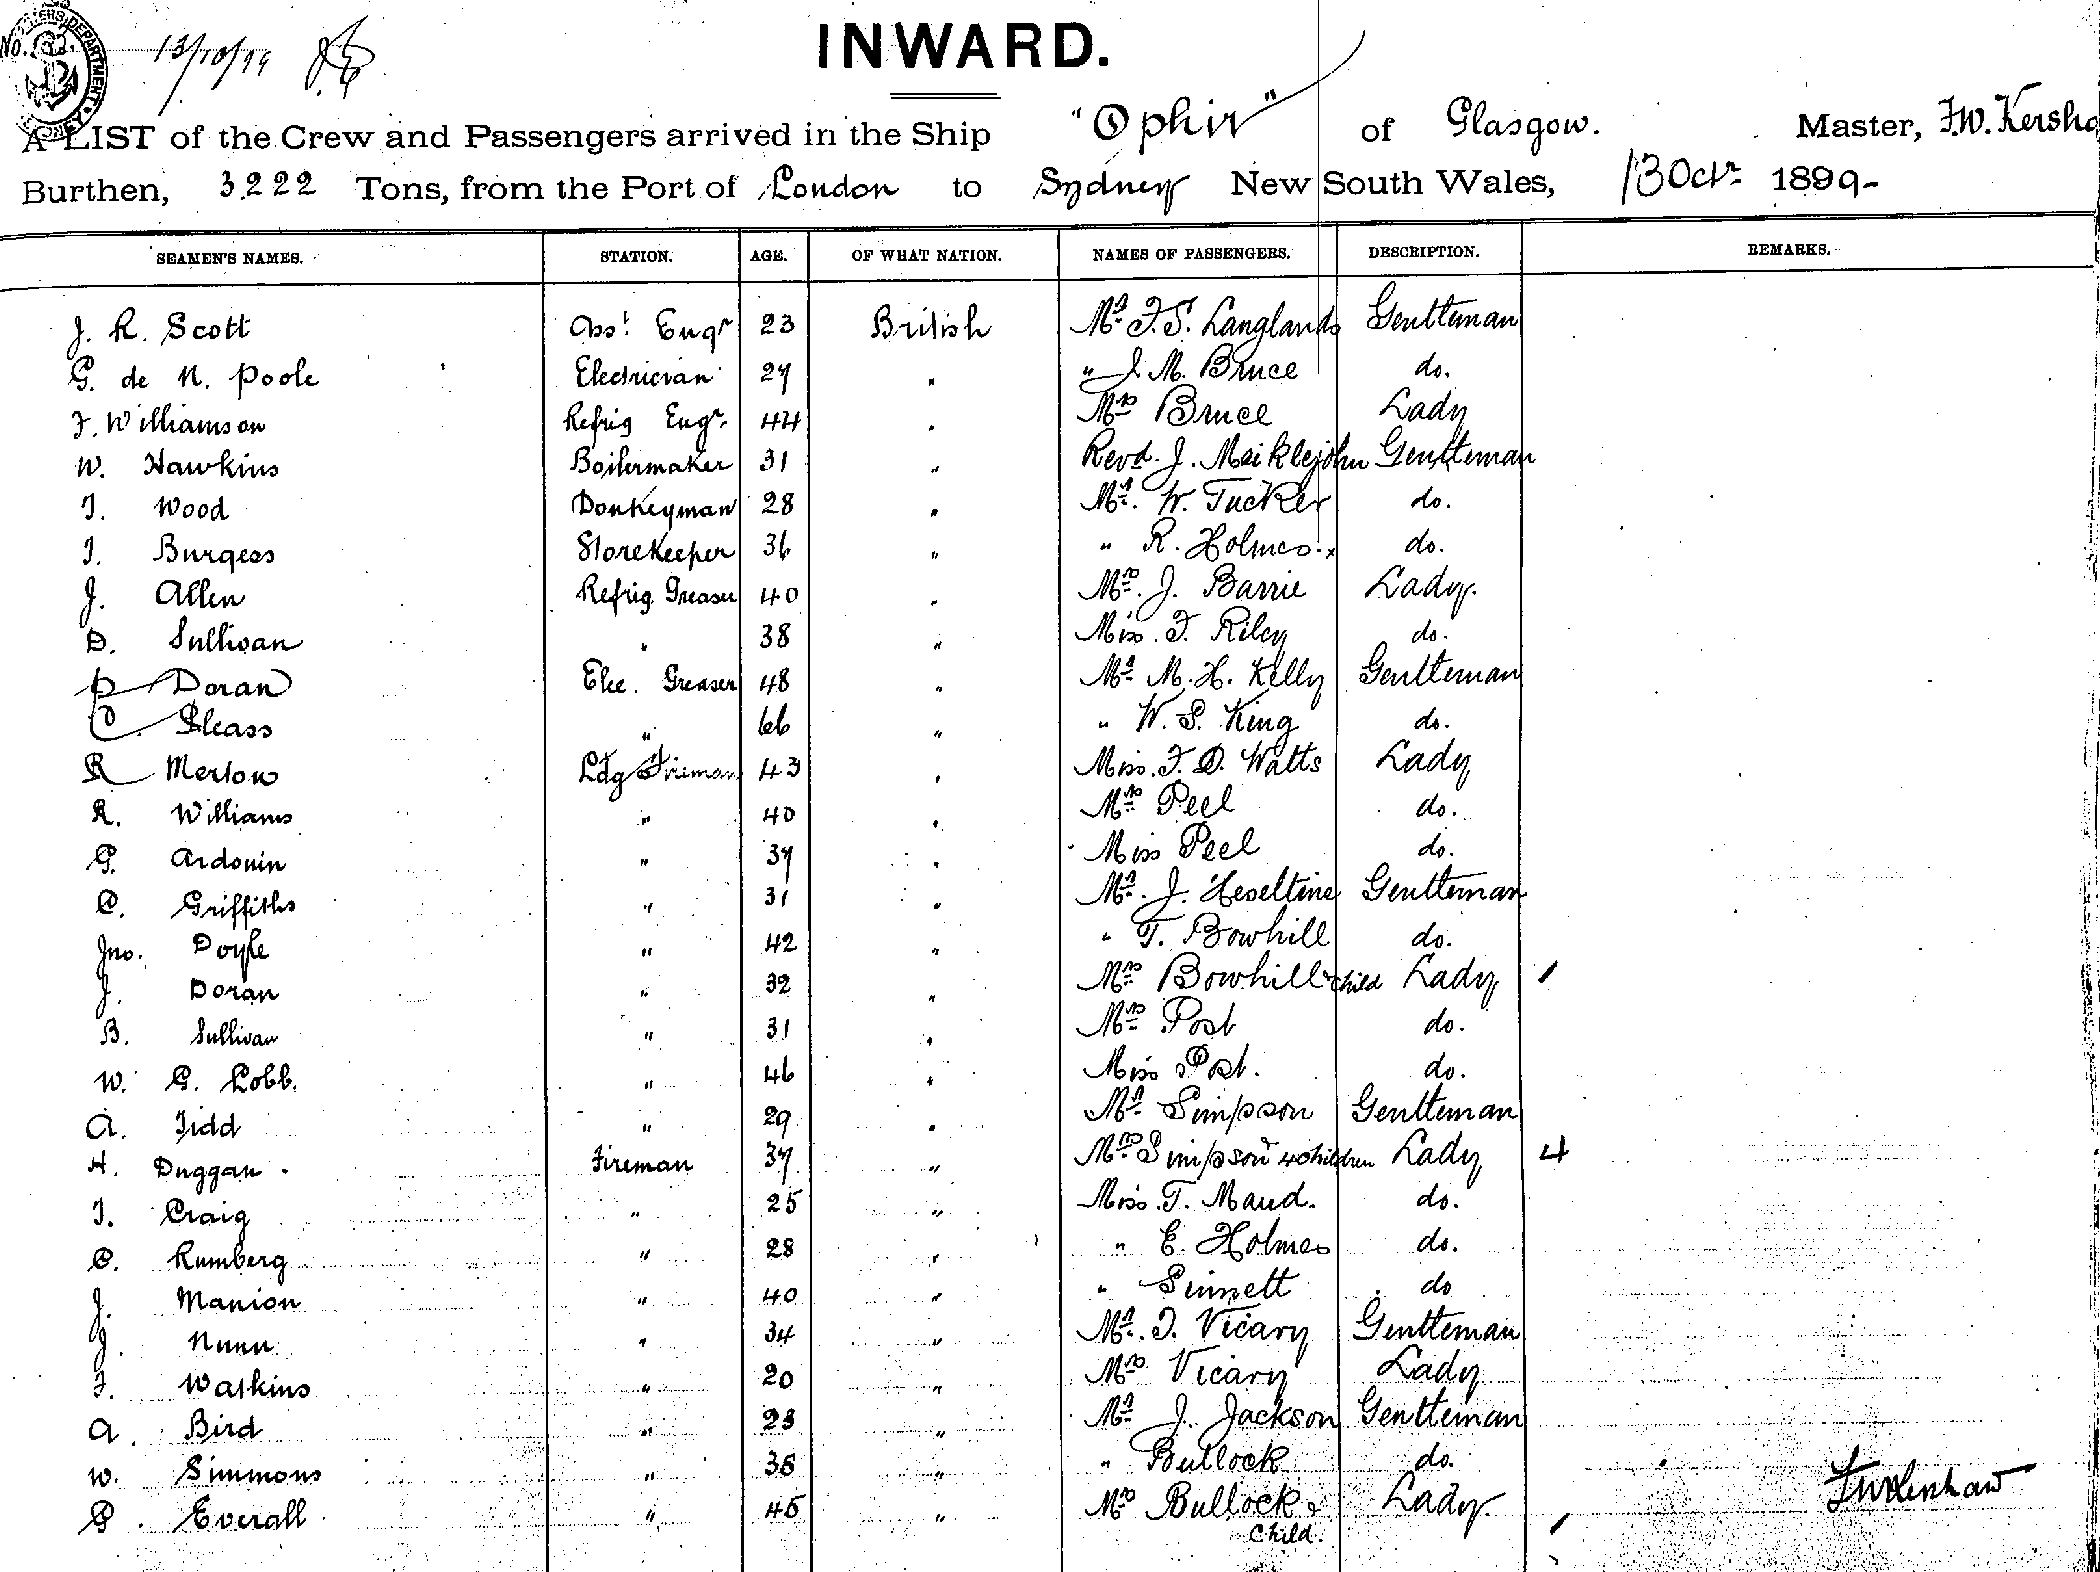 No.
13/10/99
INWARD.
A LIST of the Crew and Passengers arrived in the Ship "Ophir" of Glasgow. Master, F.W. Kersha
Burthen, 3222 Tons, from the Port of London to Sydney New South Wales, 13 Octr 1899-
SEAMEN'S NAMES. STATION. AGE. OF WHAT NATION. NAMES OF PASSENGERS. DESCRIPTION. REMARKS.
J. R. Scott Asst Engr 23 British Mr. F.S. Langlands Gentleman
G. de N. Poole Electrician 27 " " J. M. Bruce do.
F. Williamson Refrig Engr. 44 " Mrs Bruce Lady
W. Hawkins Boilermaker 31 " Revd. J. Meiklejohn Gentleman
T. Wood Donkeyman 28 " Mr. W. Tucker do.
T. Burgess Storekeeper 36 " " R. Holmes. do.
J. Allen Refrig. Greaser 40 " Mrs. J. Barrie Lady.
D. Sullivan " 38 " Miss. F. Riley do.
P Doran Elec. Greaser 48 " Mr M. H. Kelly Gentleman
C. Pleass " 66 " " W. S. King do.
R Merton Ldg Fireman 43 " Miss. F. D. Watts Lady
R. Williams " 40 " Mrs Peel do.
G. Ardouin " 37 " Miss Peel do.
C. Griffiths " 31 " Mr. J. Heseltine Gentleman
Jno. Doyle " 42 " " T. Bowhill do.
J. Doran " 32 " Mrs Bowhill & child Lady /
B. Sullivan " 31 " Mrs Post do.
W. G. Lobb. " 46 " Miss Post. do.
A. Tidd " 29 " Mr Simpson Gentleman
H. Duggan. Fireman 37 " Mrs Simpson & 4 children Lady 4
T. Craig " 25 " Miss. T. Maud. do.
C. Rumberg " 28 " " E. Holmes do.
J. Manion " 40 " " Sinnett do
J. Nunn " 34 " Mr. T. Vicary Gentleman
F. Watkins " 20 " Mrs Vicary Lady
A. Bird " 23 " Mr J. Jackson Gentleman
W. Simmons " 38 " " Bullock do.
P. Everall " 45 " Mrs Bullock & Lady.
Child. /
FW Kershaw